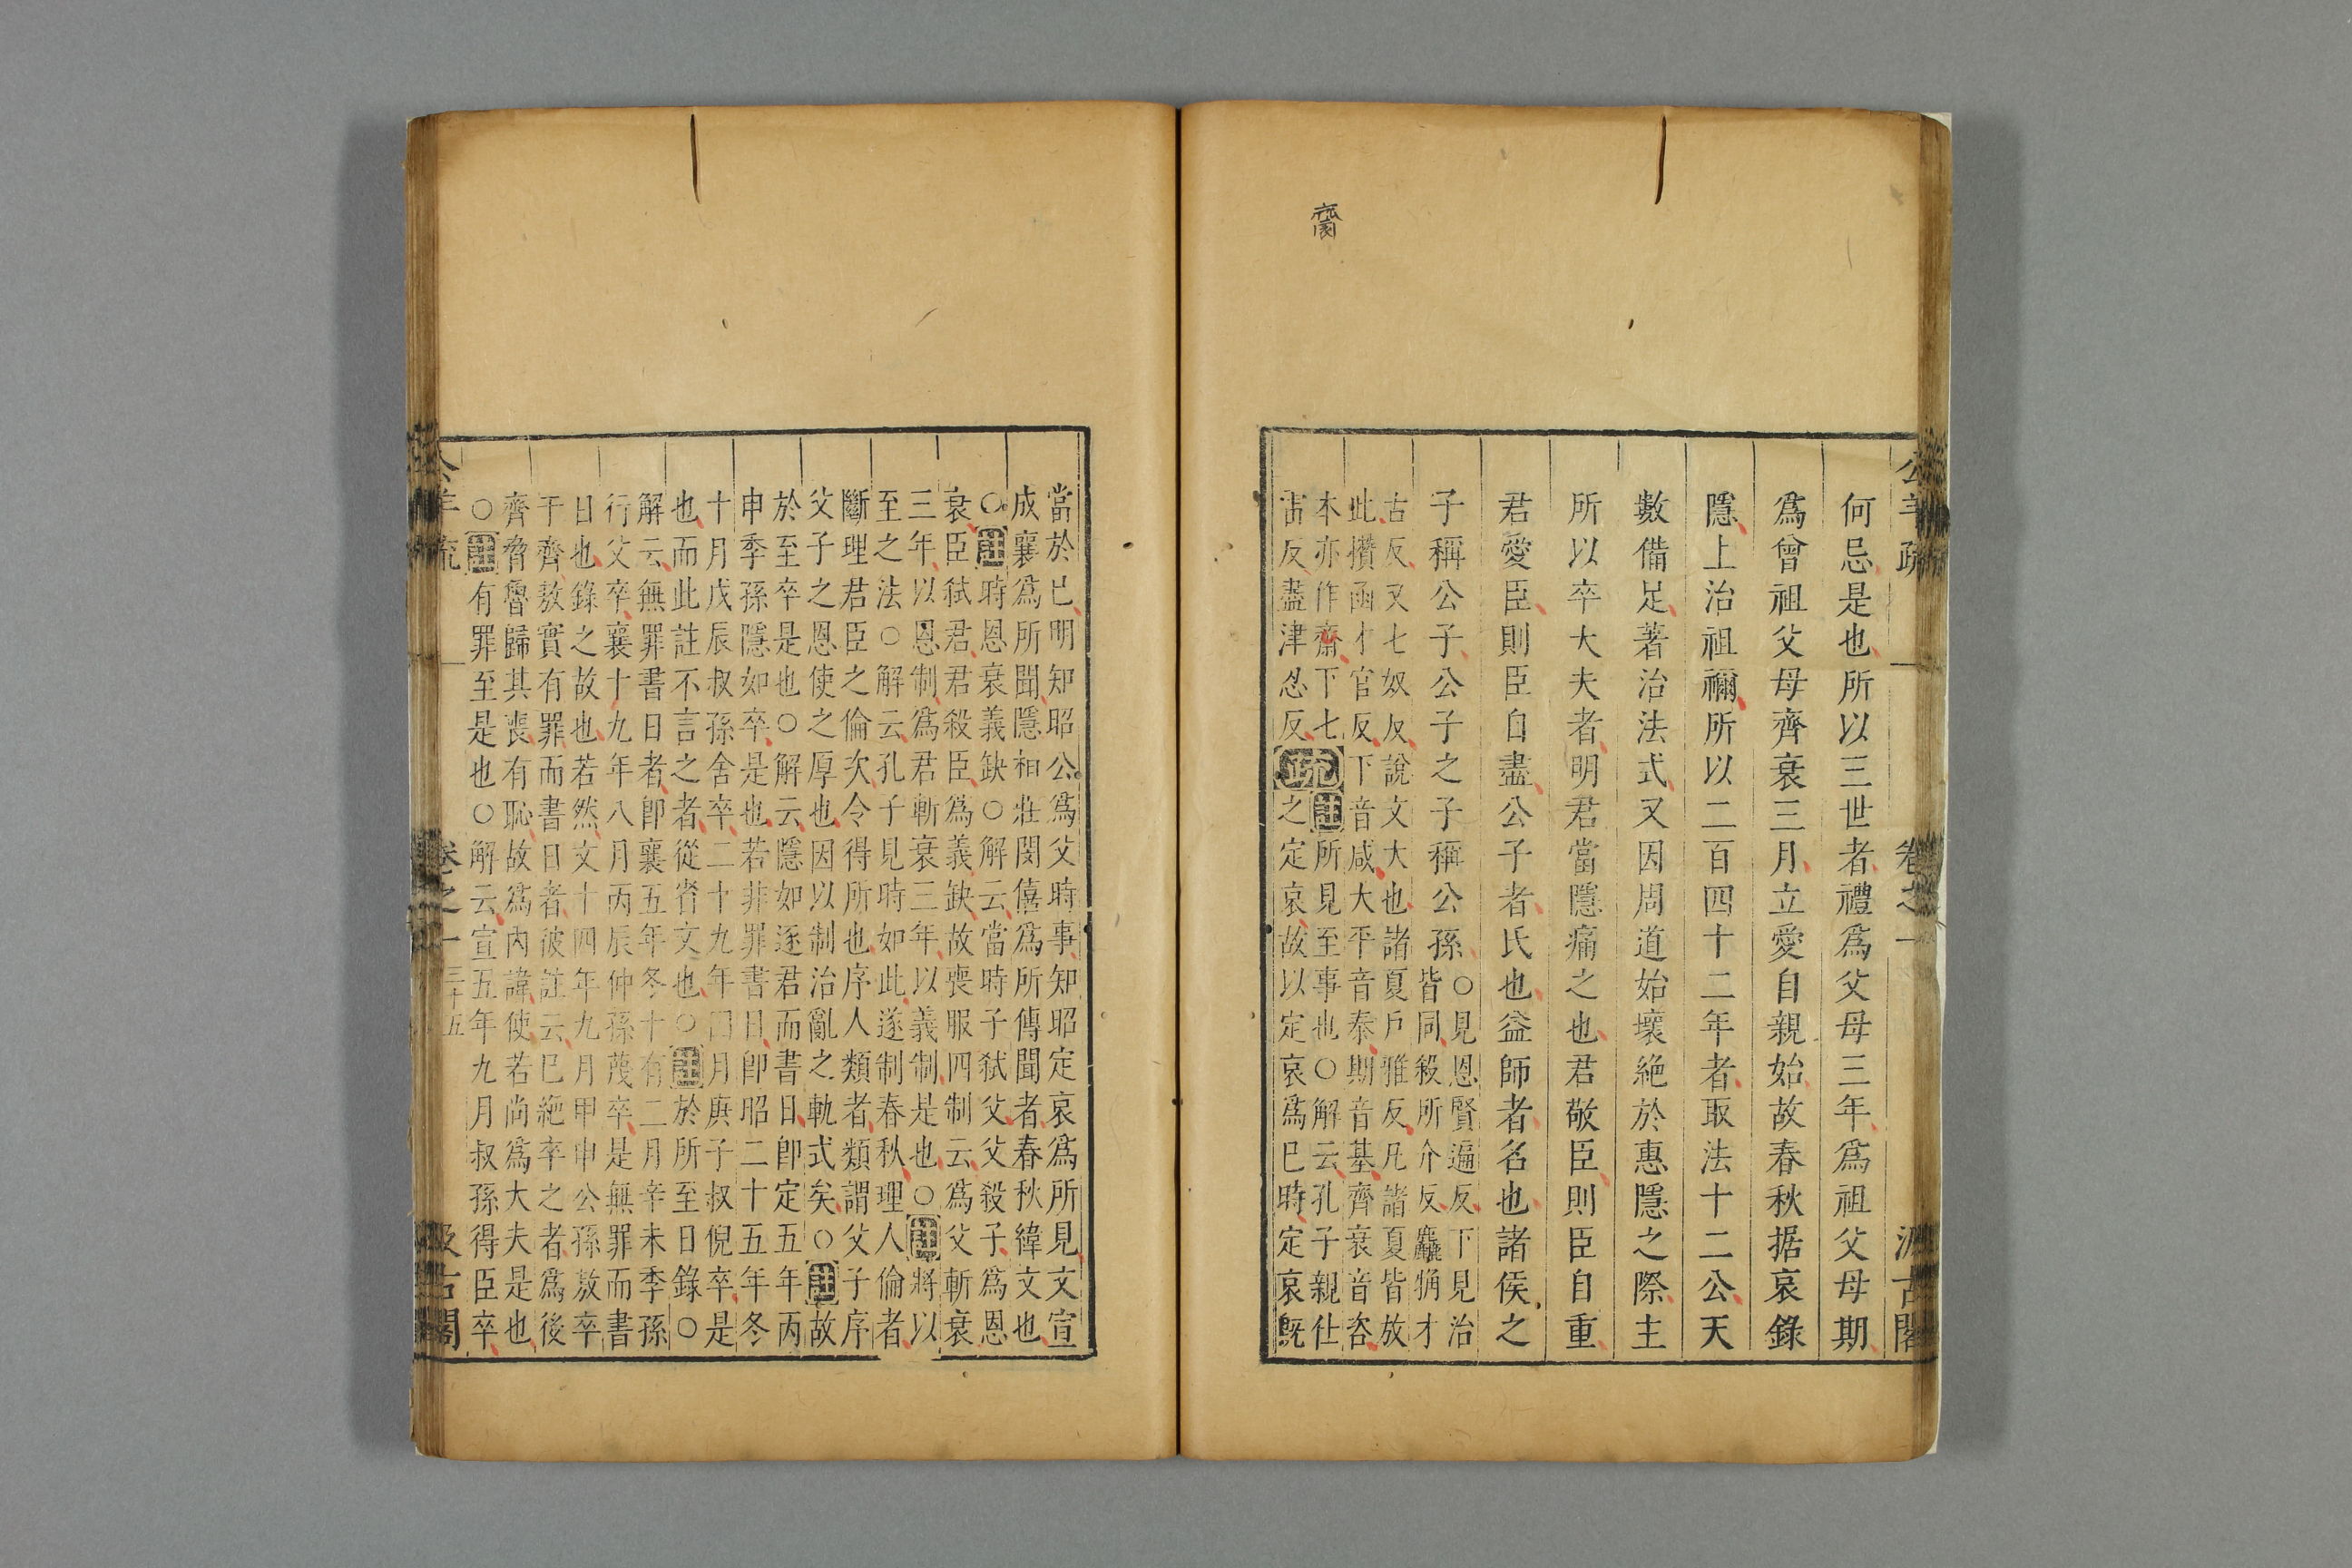 齋
公羊疏 卷之一 汲古閣
何忌是也所以三世者禮爲父母三年爲祖父母期
爲曾祖父母齊衰三月立愛自親始故春秋据哀錄
隱上治祖禰所以二百四十二年者取法十二公天
數備足著治法式又因周道始壞絶於惠隱之際主
所以卒大夫者明君當隱痛之也君敬臣則臣自重
君愛臣則臣自盡公子者氏也益師者名也諸侯之
子稱公子公子之子稱公孫
○見恩賢遍反下見治
皆同殺所介反麤觕才
古反又七奴反說文大也諸夏戶雅反凡諸夏皆放
此攢函才官反下音咸大平音泰期音基齊衰音咨
本亦作齋下七
雷反盡津忍反
疏
註所見至事也○解云孔子親仕
之定哀故以定哀爲巳時定哀旣
當於巳明知昭公爲父時事知昭定哀爲所見文宣
成襄爲所聞隱桓莊閔僖爲所傳聞者春秋緯文也
○註時恩衰義缺○解云當時子弑父父殺子爲恩
衰臣弑君君殺臣爲義缺故喪服四制云爲父斬衰
三年以恩制爲君斬衰三年以義制是也○註將以
至之法○解云孔子見時如此遂制春秋理人倫者
斷理君臣之倫次令得所也序人類者類謂父子序
父子之恩使之厚也因以制治亂之軌式矣○註故
於至卒是也○解云隱如逐君而書日卽定五年丙
申季孫隱如卒是也若非罪書日卽昭二十五年冬
十月戊辰叔孫舍卒二十九年四月庚子叔倪卒是
也而此註不言之者從省文也○註於所至日錄○
解云無罪書日者卽襄五年冬十有二月辛未季孫
行父卒襄十九年八月丙辰仲孫蔑卒是無罪而書
日也錄之故也若然文十四年九月甲申公孫敖卒
于齊敖實有罪而書日者彼註云巳絶卒之者爲後
齊脅魯歸其喪有恥故爲內諱使若尚爲大夫是也
○註有罪至是也○解云宣五年九月叔孫得臣卒
公羊疏 卷之一 三十五 汲古閣